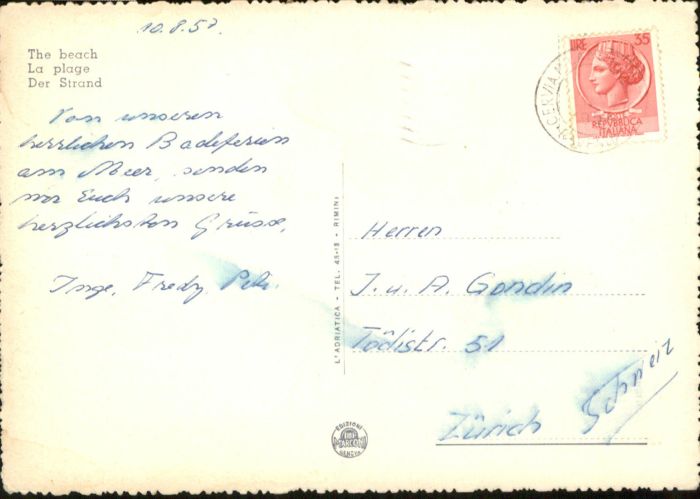 10.8.57.
The beach
La plage
Der Strand
Von unseren
herrlichen Badeferien
am Meer, senden
wir Euch unsere
herzlichsten Grüsse,
Inge, Fredy
L'ADRIATICA - TEL. 45-13 - RIMINI
EDIZIONI
GENOVA
LIRE 35
REPUBBLICA
ITALIANA
CERVIA
Herren
J. u. A. Gondin
Tödistr. 51
Zürich
Schweiz